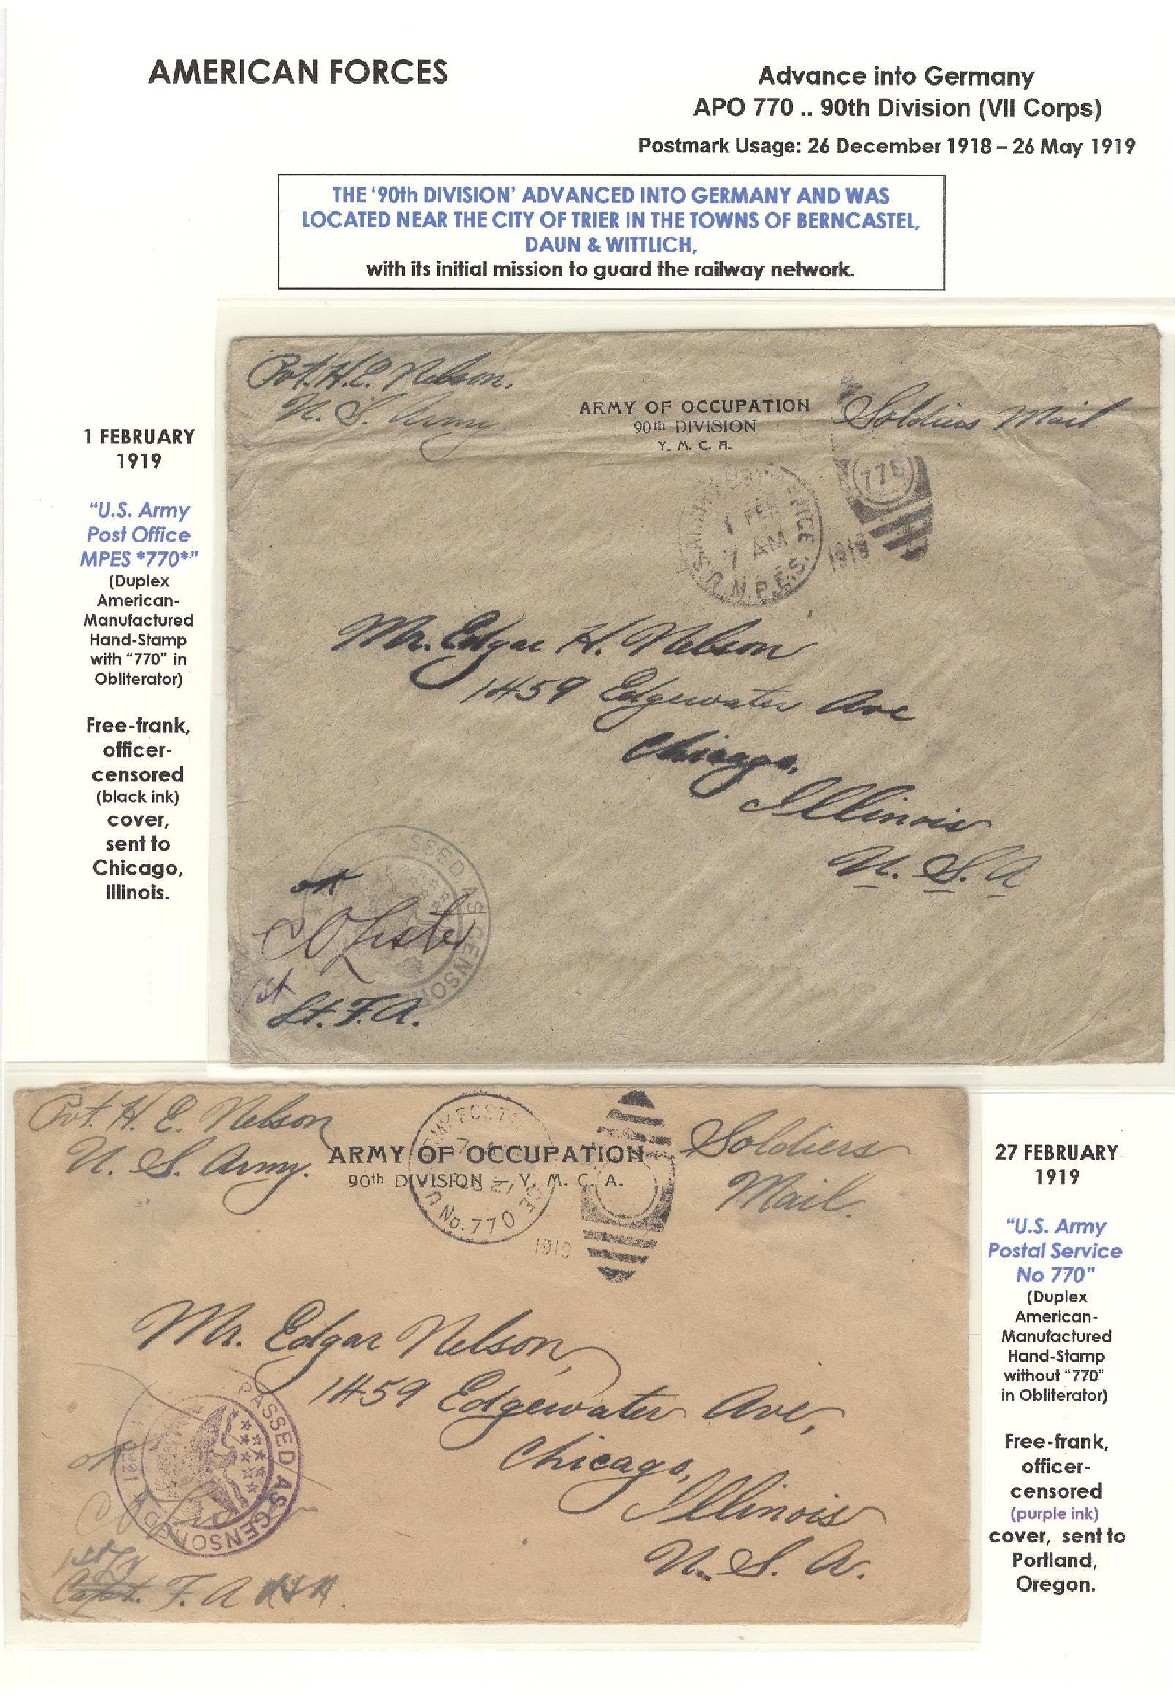 AMERICAN FORCES
Advance into Germany
APO 770 .. 90th Division (VII Corps)
Postmark Usage: 26 December 1918 – 26 May 1919
THE ‘90th DIVISION’ ADVANCED INTO GERMANY AND WAS
LOCATED NEAR THE CITY OF TRIER IN THE TOWNS OF BERNCASTEL,
DAUN & WITTLICH,
with its initial mission to guard the railway network.
1 FEBRUARY
1919
“U.S. Army
Post Office
MPES *770*”
(Duplex
American-
Manufactured
Hand-Stamp
with “770” in
Obliterator)
Free-frank,
officer-
censored
(black ink)
cover,
sent to
Chicago,
Illinois.
Pvt. H.E. Nelson.
U. S. Army
ARMY OF OCCUPATION
90th DIVISION
Y. M. C. A.
Soldiers Mail
1 FEB
7 AM
M.P.E.S.
1919
Mr. Edgar H. Nelson
1459 Edgewater Ave
Chicago,
Illinois
U. S. A
SSED AS CENSOR
OK
1st
Lt. F. A.
Pvt. H. E. Nelson
U. S. Army.
ARMY OF OCCUPATION
90th DIVISION — Y. M. C. A.
No. 770
1919
Soldiers
Mail.
Mr. Edgar Nelson,
1459 Edgewater Ave,
Chicago,
Illinois
U. S. A.
PASSED AS CENSORED
OK
1st Lt
Capt. F. A
27 FEBRUARY
1919
“U.S. Army
Postal Service
No 770”
(Duplex
American-
Manufactured
Hand-Stamp
without “770”
in Obliterator)
Free-frank,
officer-
censored
(purple ink)
cover, sent to
Portland,
Oregon.